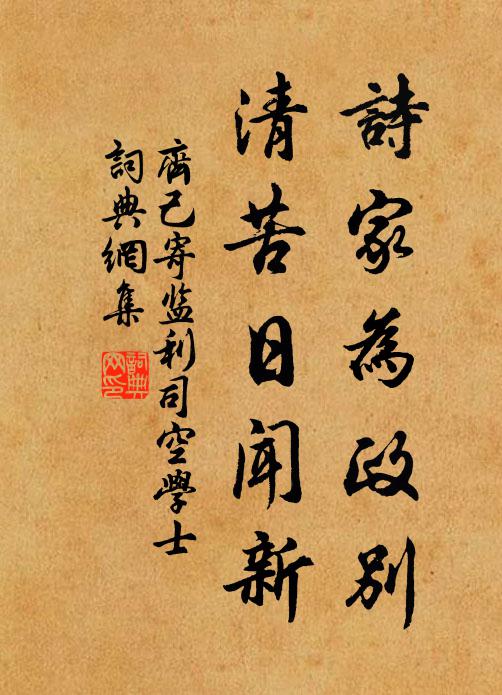 詩家為政別
清苦日聞新
齊己寄监利司空學士
詞典網集
詞典
网印